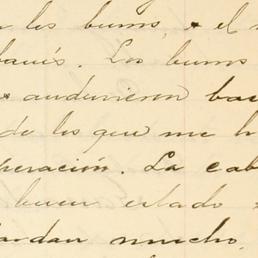 los buros, el
baúis. Los buros
anduvieron bas
do los que me h
peración. La cab
buen estado
dan mucho.